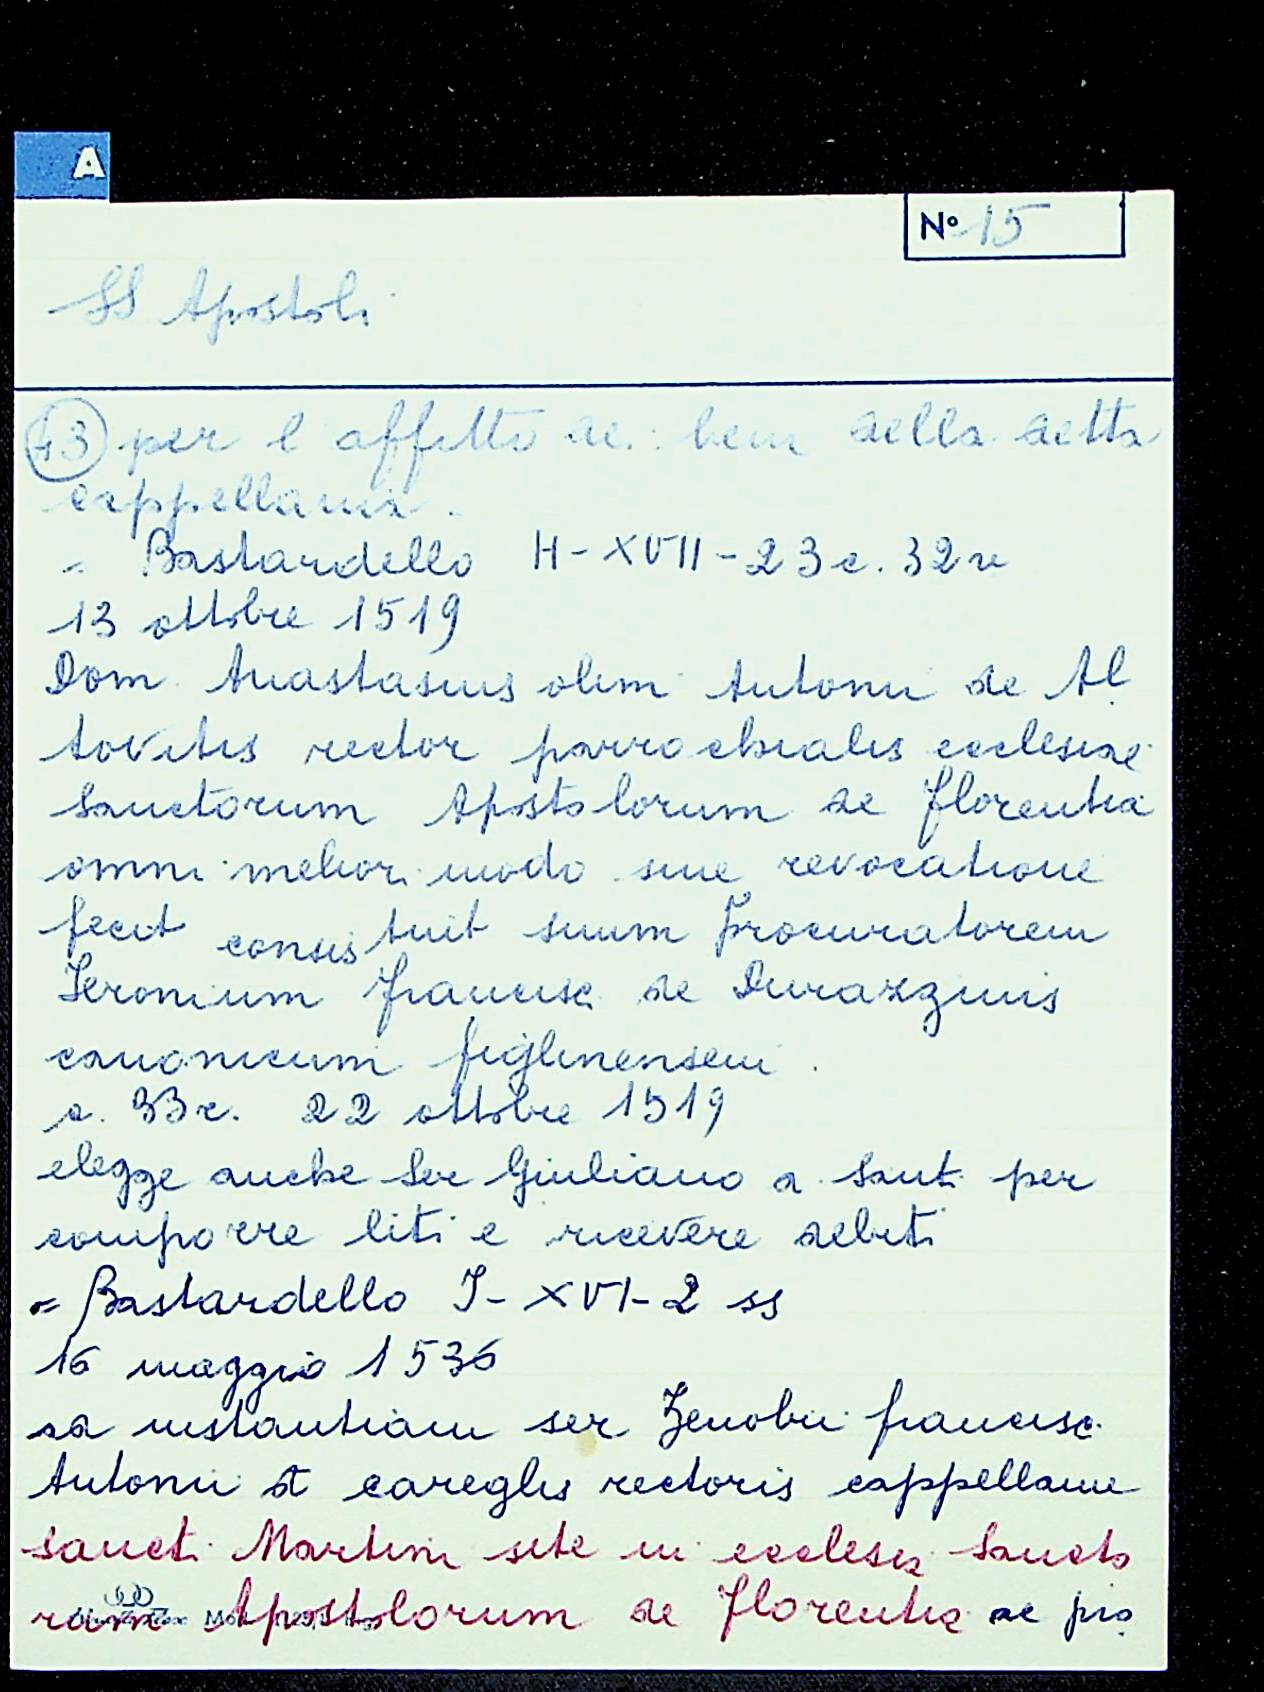 A
Nº 15
SS Apostoli
43 per l affitto dei beni della detta
cappellania.
= Bastardello H-XVII-23 c. 32v
13 ottobre 1519
Dom Anastasius olim Antonii de Al
tovitis rector parrochialis ecclesiae
Sanctorum Apostolorum de Florentia
omni meliori modo sine revocatione
fecit consistuit suum procuratorem
Ieronium Francisci de Durazzinis
canonicum figlinensem.
c. 33r. 22 ottobre 1519
elegge anche Ser Giuliano a Santi per
comporre liti e ricevere debiti
= Bastardello I-XVI-2 ss
16 maggio 1536
ad instantiam ser Zenobii Francisci
Antonii de careglis rectoris cappellanie
sancti Martini site in ecclesia Sancto
rum Apostolorum de Florentia de pio